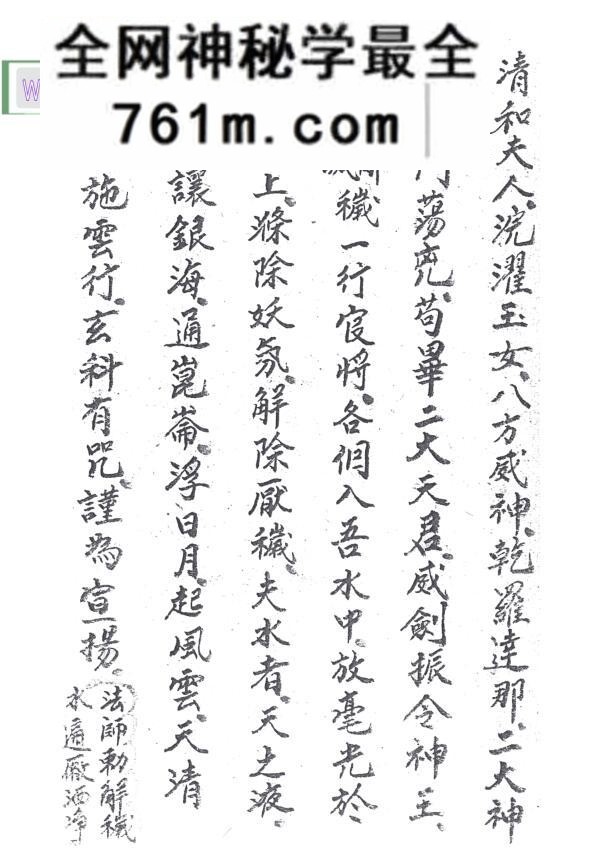 全网神秘学最全
761m.com
W
清和夫人、浣濯玉女、八方威神、乾羅達那、二大神
蕩兇、苟畢二大天君、威劍振令神王、
穢一行官將、各們入吾水中、放毫光於
上、滌除妖氛、解除厭穢、夫水者、天之液、
讓銀海、通崑崙、浮日月、起風雲、天清
施雲行、玄科有咒、謹為宣揚、
法師勅解穢
水遍厰洒净